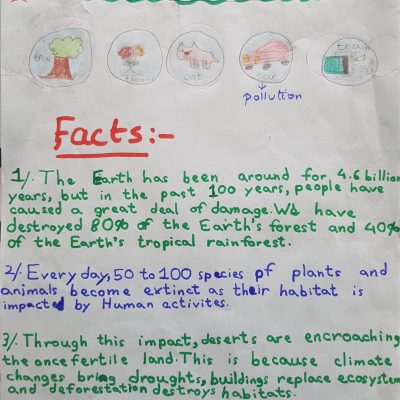 tree
cat
car
pollution
Facts:-
1/. The Earth has been around for 4.6 billion
years, but in the past 100 years, people have
caused a great deal of damage. We have
destroyed 80% of the Earth's forest and 40%
of the Earth's tropical rainforest.
2/. Every day, 50 to 100 species of plants and
animals become extinct as their habitat is
impacted by Human activites.
3/. Through this impact, deserts are encroaching
the once fertile land. This is because climate
changes bring droughts, buildings replace ecosystem
and deforestation destroys habitats.